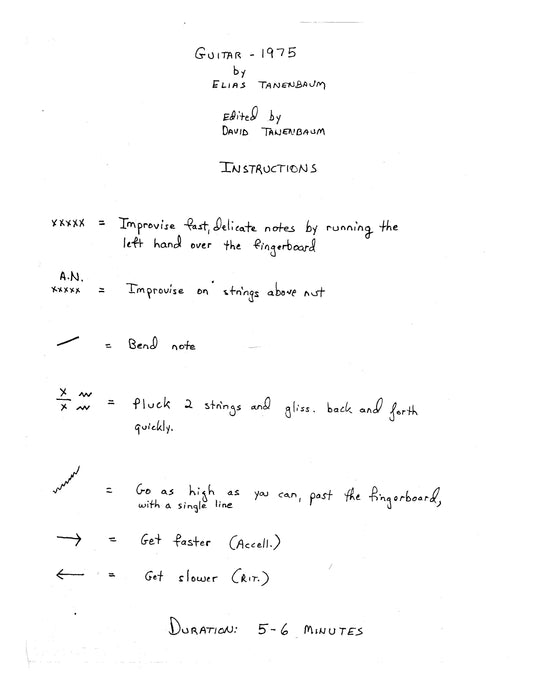 GUITAR - 1975
by
ELIAS TANENBAUM
Edited by
DAVID TANENBAUM
INSTRUCTIONS
xxxxx = Improvise fast, delicate notes by running the
left hand over the fingerboard
A.N.
xxxxx = Improvise on strings above nut
= Bend note
x
x = Pluck 2 strings and gliss. back and forth
quickly.
= Go as high as you can, past the fingerboard,
with a single line
→ = Get faster (Accell.)
← = Get slower (RIT.)
DURATION: 5-6 MINUTES